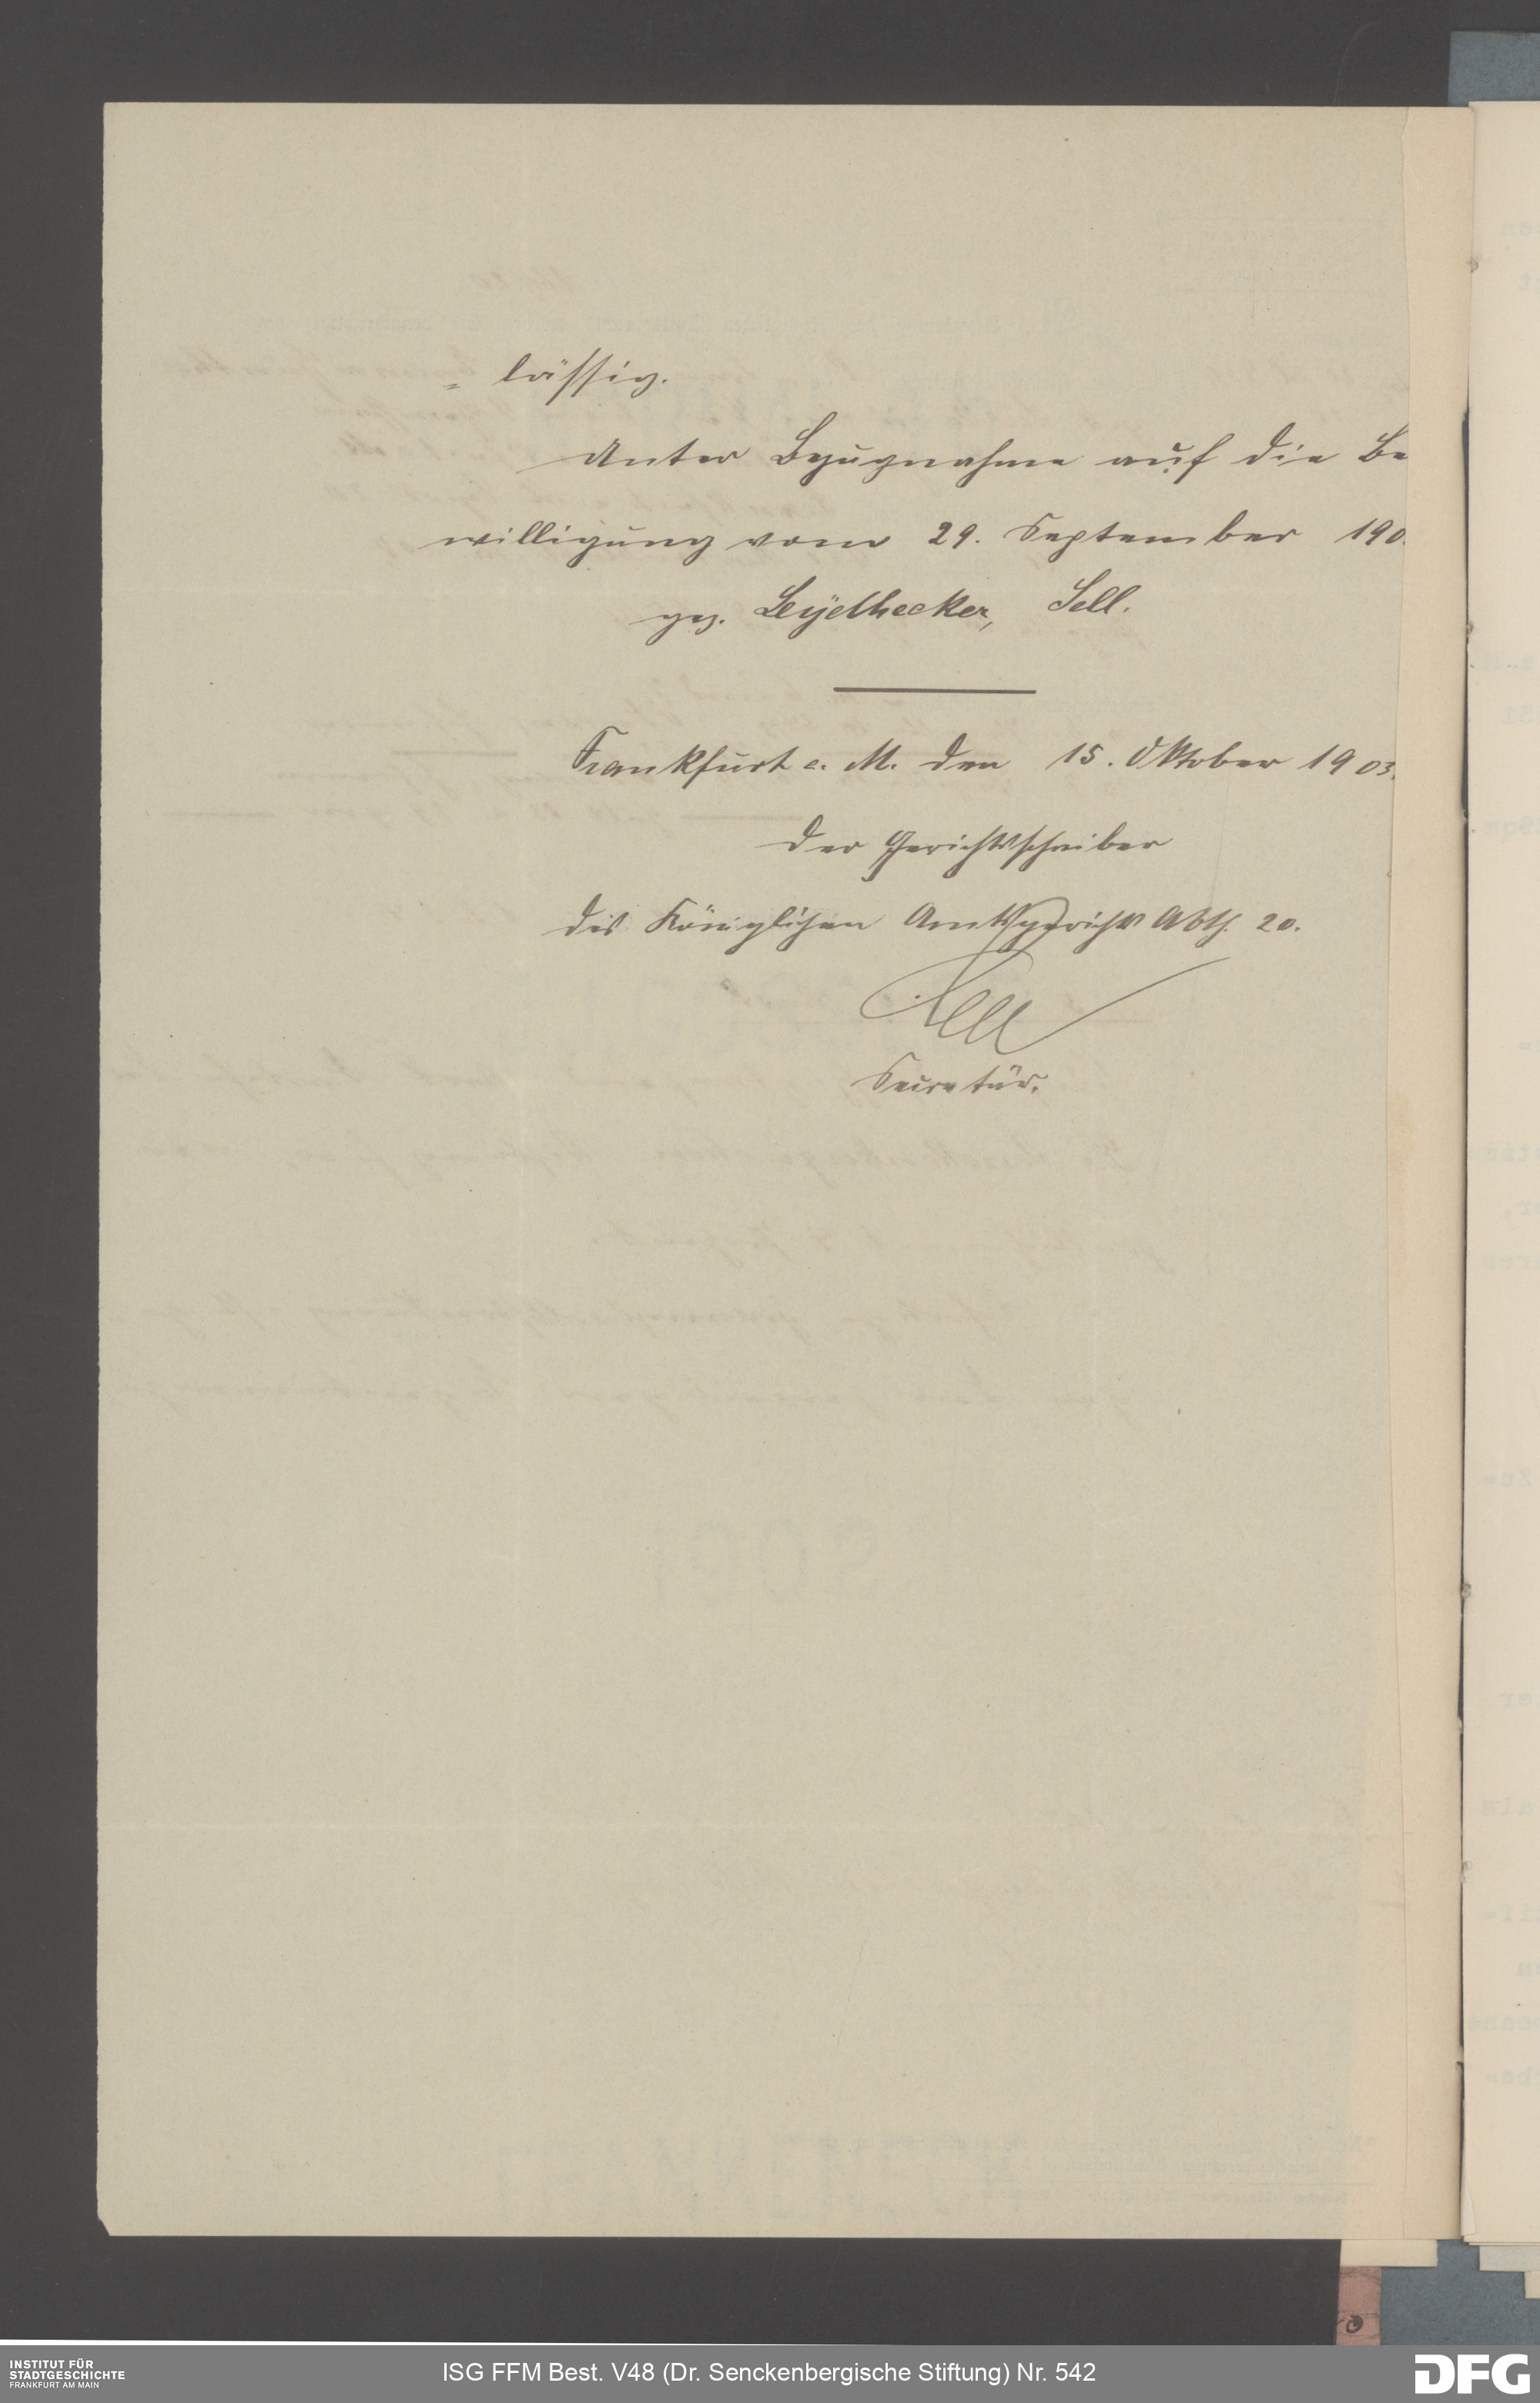 = lässig.
Unter Bezugnahme auf die Be
willigung vom 29. September 190
gez. Leydhecker, Sell.
Frankfurt a. M. den 15. Oktober 1903.
Der Gerichtsschreiber
des Königlichen Amtsgerichts Abth. 20.
Sell
Secretär.
INSTITUT FÜR
STADTGESCHICHTE
FRANKFURT AM MAIN
ISG FFM Best. V48 (Dr. Senckenbergische Stiftung) Nr. 542
DFG